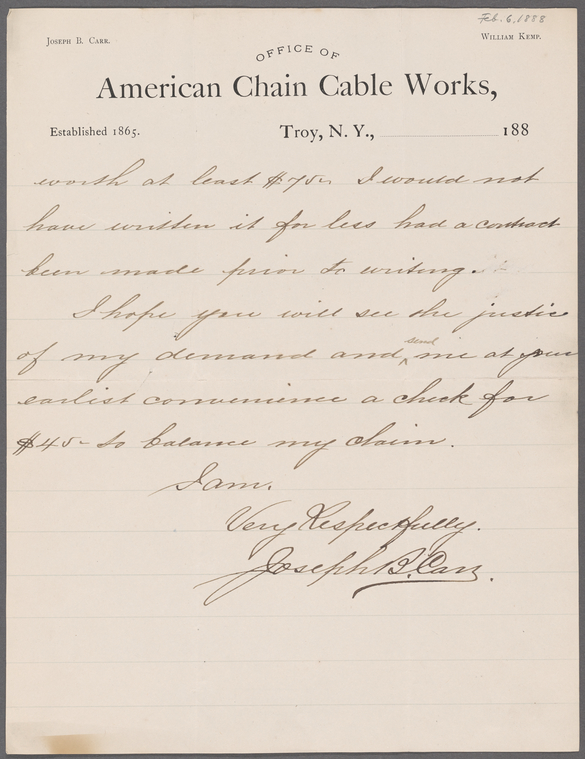 Feb. 6, 1888
Joseph B. Carr.
William Kemp.
OFFICE OF
American Chain Cable Works,
Established 1865.
Troy, N. Y., 188
worth at least $75- I would not
have written it for less had a contract
been made prior to writing.
I hope you will see the justice
of my demand and send me at your
earlist convenience a check for
$45- to balance my claim.
I am.
Very Respectfully.
Joseph B. Carr.